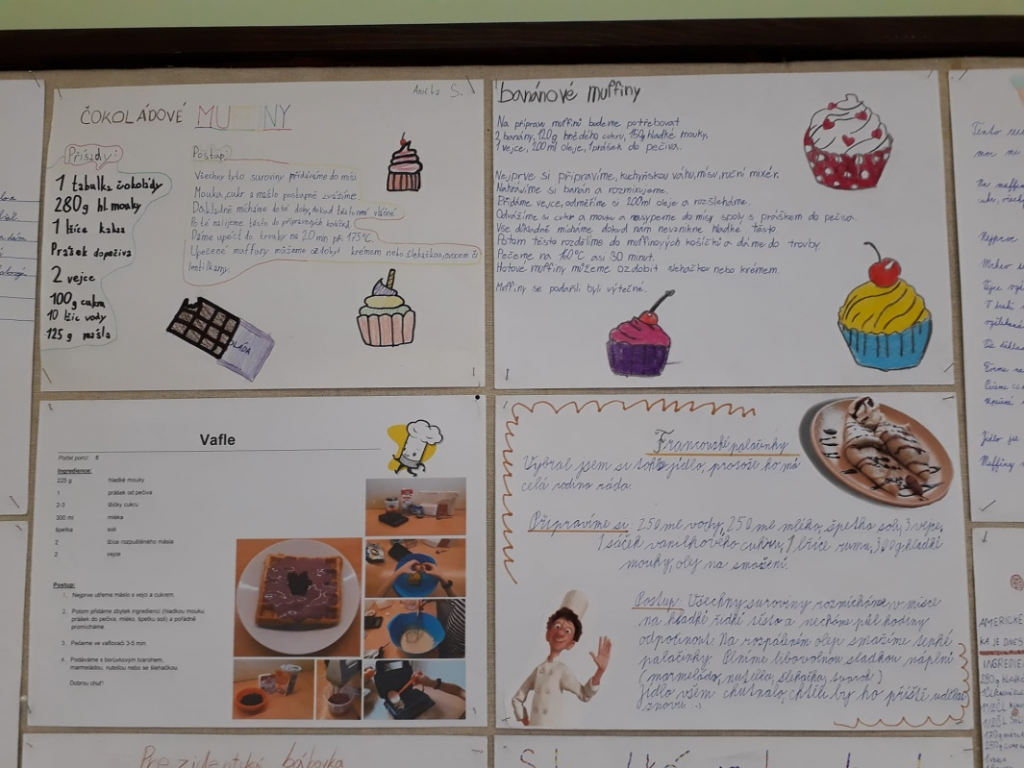 ČOKOLÁDOVÉ MUFFINY
S.
Přísady:
1 tabulka čokolády
280g hl. mouky
1 lžíce kakaa
Prášek dopečiva
2 vejce
100g cukru
10 lžic vody
125g másla
Postup:
Všechny tyto suroviny přidáváme do mísi
Mouka, cukr a máslo postupně zvážíme.
Důkladně mícháme
Poté nalijeme těsto do připravených košíčků.
Dáme upéct do trouby na 20 min při 175°C.
Upečené muffiny můžeme ozdobit krémem nebo šlehačkou, ovocem či
lentilkami.
banánové muffiny
Na přípravu muffinů budeme potřebovat
2 banány, 120g hnědého cukru, 150g hladké mouky,
1 vejce, 200ml oleje, 1 prášek do pečiva.
Nejprve si připravíme, kuchyňskou váhu, mísu, ruční mixér.
Nakrájíme si banán a rozmixujeme.
Přidáme vejce, odměříme si 200ml oleje a rozšleháme.
Odvážíme si cukr a mouku a nasypeme do mísy spolu s práškem do pečiva.
Vše důkladně mícháme dokud nám nevznikne hladké těsto.
Potom těsto rozdělíme do muffinových košíčků a dáme do trouby.
Pečeme na 160°C asi 30 minut.
Hotové muffiny můžeme ozdobit šlehačkou nebo krémem.
Muffiny se podařili byli výtečné.
Vafle
Počet porcí: 8
Ingredience:
225 g hladké mouky
1 prášek do pečiva
2-3 lžičky cukru
300 ml mléka
špetka soli
2 lžíce rozpuštěného másla
2 vejce
Postup:
1. Nejprve utřeme máslo s vejci a cukrem.
2. Potom přidáme zbytek ingrediencí (hladkou mouku,
prášek do pečiva, mléko, špetku soli) a pořádně
promícháme
3. Pečeme ve vaflovači 3-5 min.
4. Podáváme s borůvkovým tvarohem,
marmeládou, nutellou nebo se šlehačkou.
Dobrou chuť!
Francouzské palačinky
Vybral jsem si toto jídlo, protože ho má
celá rodina ráda.
Připravíme si: 250 ml vody, 250 ml mléka, špetka soli, 3 vejce,
1 sáček vanilkového cukru, 1 lžíce rumu, 300g hladké
mouky, olej na smažení.
Postup: Všechny suroviny rozmícháme v misce
na hladké řidké těsto a necháme půl hodiny
odpočinout. Na rozpáleném oleji smažíme tenké
palačinky. Plníme libovolnou sladkou náplní
(marmeláda, nutella, šlehačka, tvaroh)
Jídlo všem chutnalo, chtěli by ho příště udělat
znovu :-)
AMERICKÉ
KA JE DNES
INGREDIE
Prezidentská bábovka